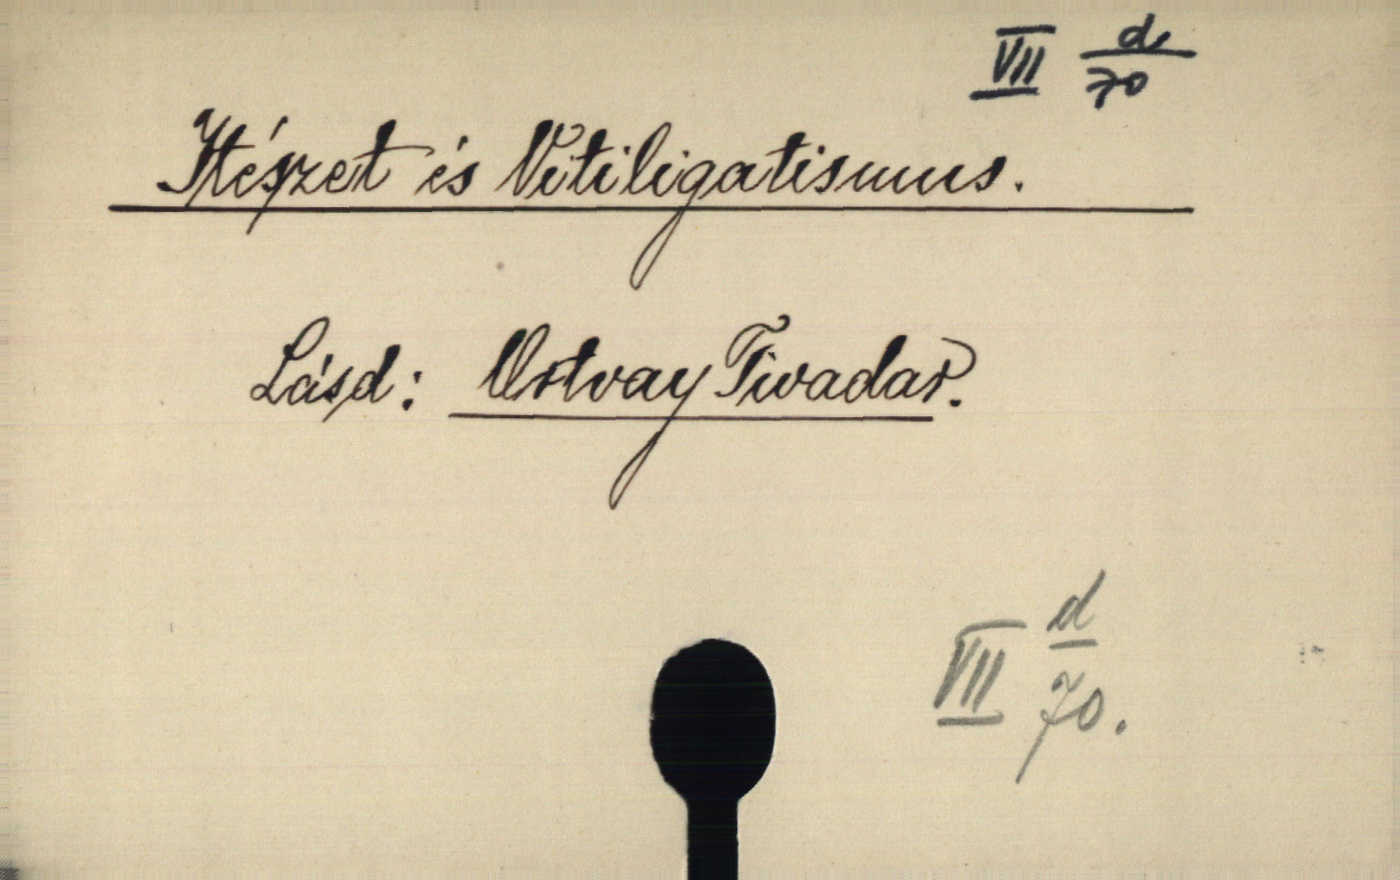 VII d/70
Itészet és Vitiligatismus.
Lásd: Ortvay Tivadar.
VII d/70.